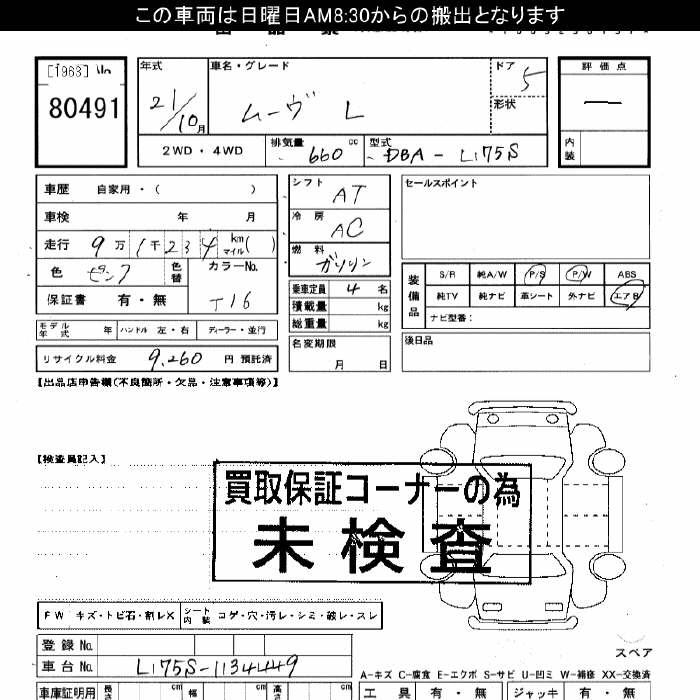 この車両は日曜日AM8:30からの搬出となります
[1963] No
80491
年式
21/10月
車名・グレード
ムーヴ L
ドア
5
形状
評価点
—
内装
2WD・4WD
排気量 660 cc
型式 DBA-L175S
車歴 自家用・( )
車検 年 月
走行 9万1千234 km マイル( )
色
色替
カラーNo.
T16
保証書 有・無
モデル年式 年
ハンドル 左・右
ディーラー・並行
リサイクル料金 9,260 円 預託済
シフト
AT
冷房
AC
燃料
ガソリン
乗車定員 4 名
積載量 kg
総重量 kg
名変期限
月 日
セールスポイント
装備品
S/R 純A/W P/S P/W ABS
純TV 純ナビ 革シート 外ナビ エアB
ナビ型番:
後日品
【出品店申告欄(不良箇所・欠品・注意事項等)】
【検査員記入】
買取保証コーナーの為
未検査
FW キズ・トビ石・割レX
シート内装 コゲ・穴・汚レ・シミ・破レ・スレ
登録No.
車台No. L175S-1134449
スペア
A-キズ C-腐食 E-エクボ S-サビ U-凹ミ W-補修 XX-交換済
車庫証明用 長さ cm 幅 cm 高さ cm
工具 有・無 ジャッキ 有・無